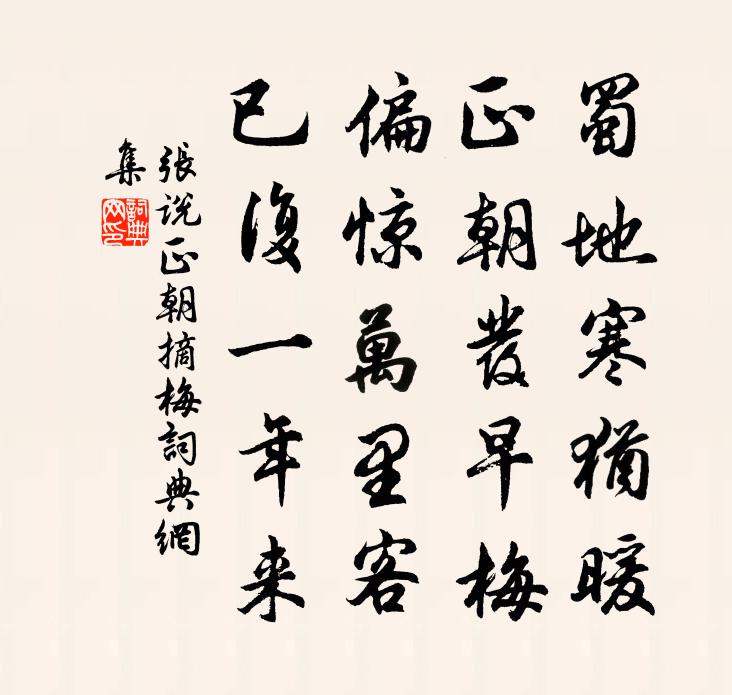 蜀地寒猶暖
正朝發早梅
偏惊萬里客
已復一年来
張說正朝摘梅詞典網
集
詞典
网印